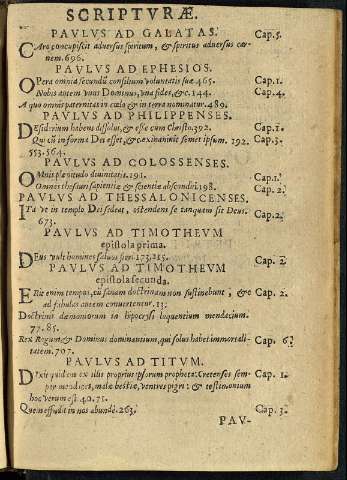 SCRIPTVRÆ.
PAVLVS AD GALATAS. Cap. 5.
CAro concupiscit adversus spiritum, & spiritus adversus car-
nem. 696.
PAVLVS AD EPHESIOS.
OPera omnia secundū consilium voluntatis suæ 465. Cap. 1.
Nobis autem unus Dominus, una fides, &c. 144. Cap. 4.
A quo omnis paternitas in cœlo & in terra nominatur. 489.
PAVLVS AD PHILIPPENSES.
DEsiderium habens dissolui, & esse cum Christo. 292. Cap. 1.
Qui cū in forma Dei esset, & exinanivit semet ipsum. 292. Cap. 3.
553. 564.
PAVLVS AD COLOSSENSES.
OMnis plenitudo divinitatis. 191. Cap. 1.
Omnes thesauri sapientiæ & scientiæ absconditi. 198. Cap. 2.
PAVLVS AD THESSALONICENSES.
ITa ut in templo Dei sedeat, ostendens se tanquam sit Deus. Cap. 2.
673.
PAVLVS AD TIMOTHEVM
epistola prima.
DEus vult homines salvos fieri. 173. 215. Cap. 2.
PAVLVS AD TIMOTHEVM
epistola secunda.
ERit enim tempus, cū sanam doctrinam non sustinebunt, &c Cap. 2.
ad fabulas autem convertentur. 13.
Doctrinis dæmoniorum in hipocrisi loquentium mendacium.
77. 85.
Rex Regum & Dominus dominantium, qui solus habet immortali- Cap. 6.
tatem. 707.
PAVLVS AD TITVM.
DIxit quidem ex illis proprius ipsorum propheta: Cretenses sem- Cap. 1.
per mendaces, malæ bestiæ, ventres pigri: & testimonium
hoc verum est. 40. 75.
Quem effudit in nos abundè. 263. Cap. 3.
PAV-